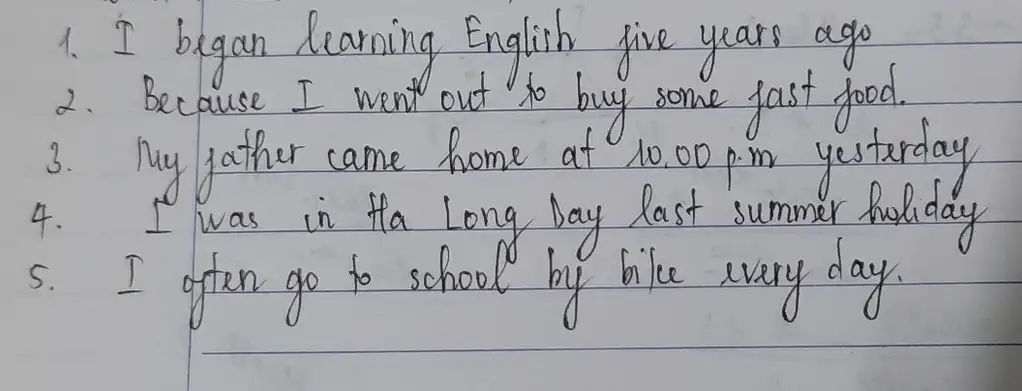 1. I began learning English five years ago
2. Because I went out to buy some fast food.
3. My father came home at 10.00 p.m yesterday
4. I was in Ha Long Bay last summer holiday
5. I often go to school by bike every day.